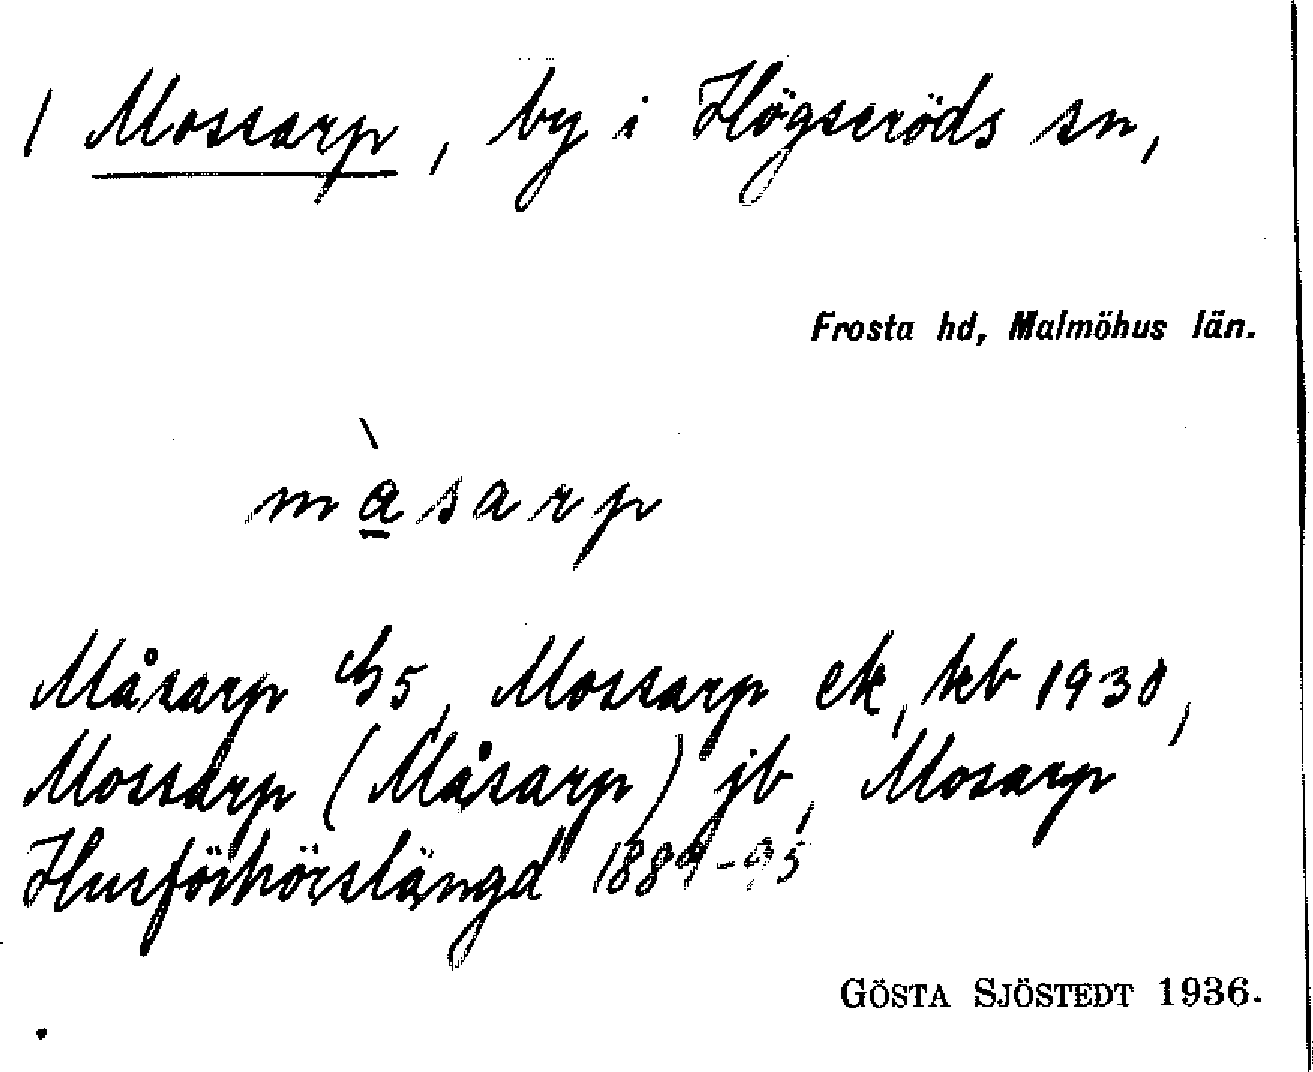 1 Mossarp, by i Högseröds sn,
Frosta hd, Malmöhus län.
màsarp
Måsarp G5, Mossarp ek, kb 1930,
Mossarp (Måsarp) jb, Mosarp
Husförhörslängd 1889-95
GÖSTA SJÖSTEDT 1936.